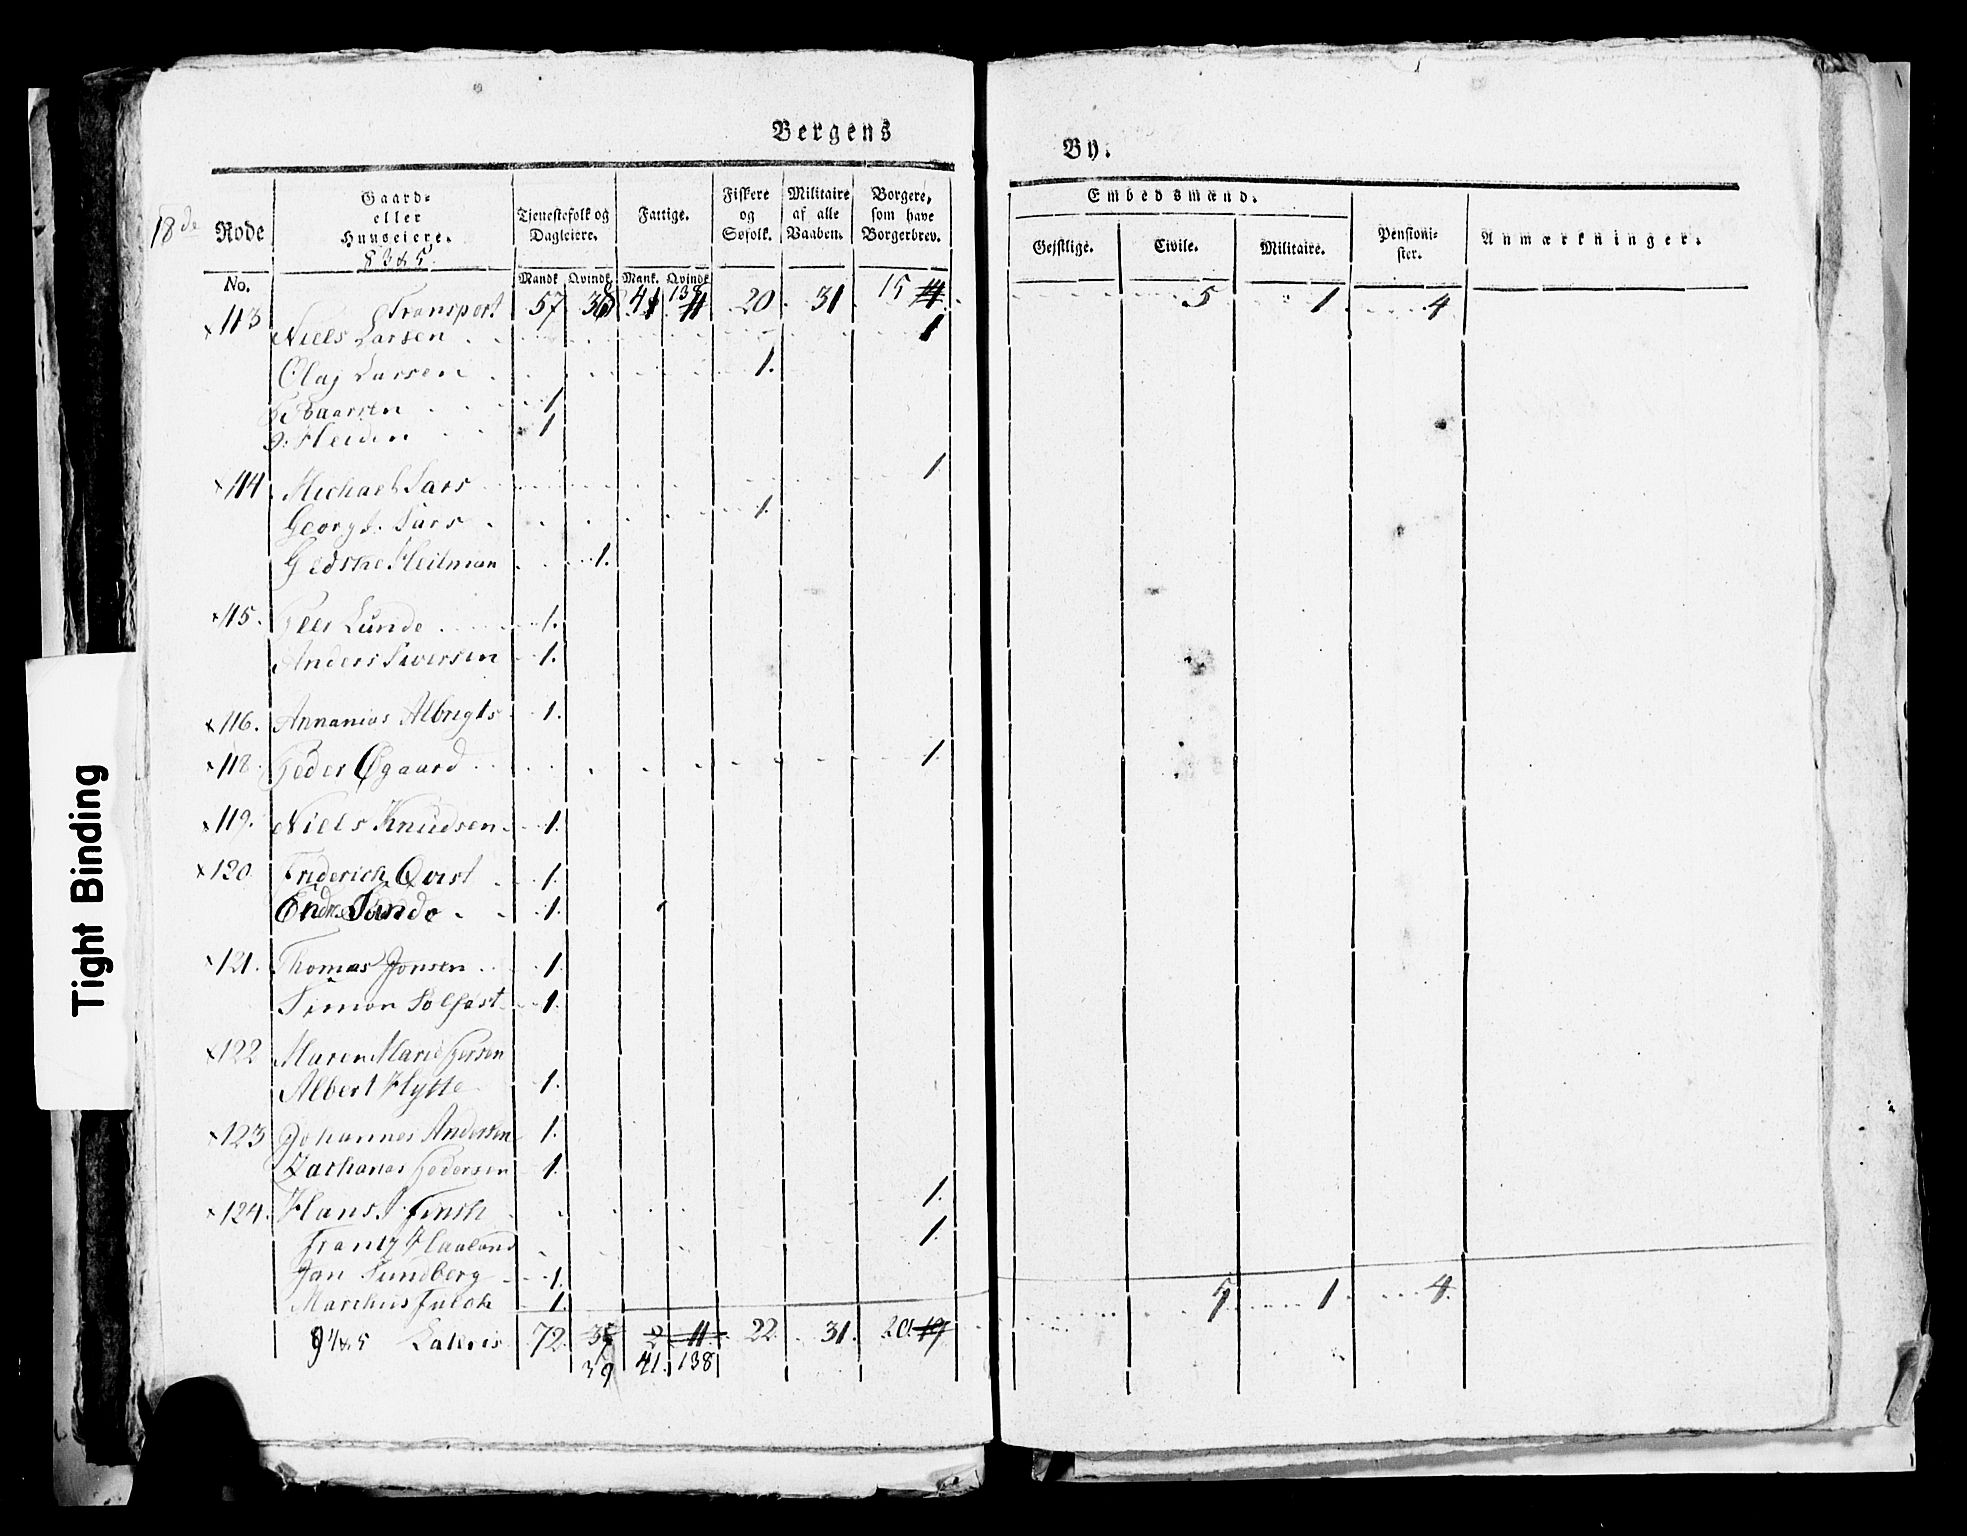 Bergens
By.
18de Rode
Gaard-
eller
Huuseiere.
8385
Tjenestefolk og
Dagleiere.
Fattige.
Fiskere
og
Søfolk.
Militaire
af alle
Vaaben.
Borgere,
som have
Borgerbrev.
Embedsmænd.
Gejstlige.
Civile.
Militaire.
Pensioni-
ster.
Anmærkninger.
No.
Mandk Qvindk Mank. Qvindk
Transport 57 38 41 138 20 31 15 5 1 4
113 Niels Larsen 1
Olaj Larsen 1.
Baarsen 1
J. Heiden 1
114 Michael Sars 1
Georg S. Sars 1.
Gedske Heilman 1.
115. Peer Lunde 1.
Anders Siversen 1.
116. Annanias Albregts 1.
118. Peder Øgaard 1.
119. Niels Knudsen 1.
120. Friderich Qvist 1.
Endre Sunde 1.
121. Thomas Jonsen 1.
Simon Solfast 1.
122 Maren Marie Persen
Albert Hytte 1.
123 Johannes Andersen 1.
Zacharias Pedersen 1.
124. Hans J. Finsk 1.
Frantz Haaland 1.
Jan Sundberg 1.
Marthus Falck 1.
9485 Lateris 72 38 2 11 22 31. 20. 19 5 1 4.
39 41. 138
Tight Binding